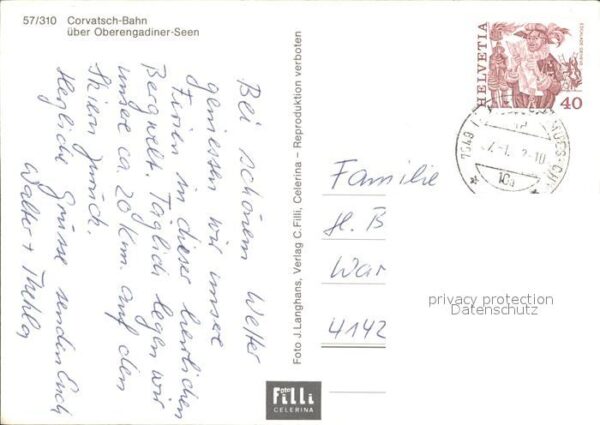 57/310 Corvatsch-Bahn
über Oberengadiner-Seen
Bei schönem Wetter
geniessen wir unsere
Ferien in dieser herrlichen
Bergwelt. Täglich legen wir
unsere ca. 20 km. auf den
Skiern zurück.
Herzliche Grüsse senden Euch
Walter +
Foto J. Langhans, Verlag C. Filli, Celerina – Reproduktion verboten
foto
filli
CELERINA
HELVETIA
40
ESCALADE GENEVE
Familie
H. B
War
4142
privacy protection
Datenschutz